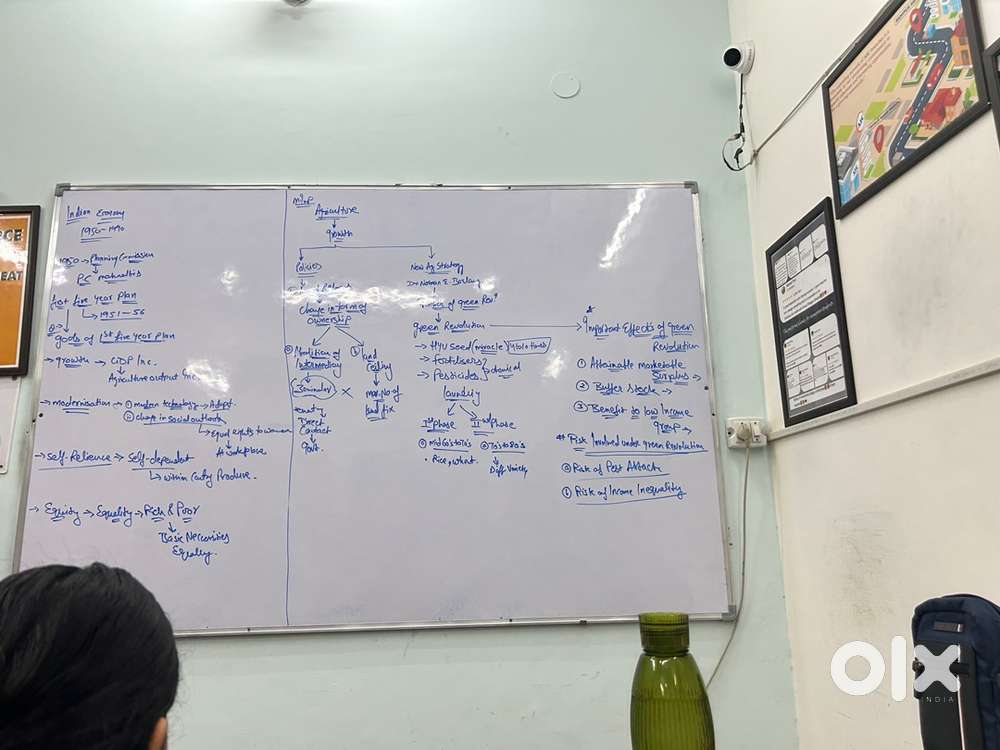 Indian Economy
1950-1990
1950 → Planning Commission
P.C
first five year plan
→ 1951-56
goals of 1st five year plan
→ growth → GDP Inc.
Agriculture output Inc.
→ modernisation → ① modern technology → Adopt
② change in social outlook
→ Equal rights to women
At workplace
→ Self-Relience → Self-dependent
→ within Contry Produce.
→ Equity → Equality → Rich & Poor
Basic Neccessities
Equality.
Agriculture
growth
Policies
change in form of
ownership
Abolition of
Intermediary
Direct
Contact
Govt.
① land
Ceiling
max. No of
land fix
New Ag Strategy
Dr Norman E. Borlaug
of green Revⁿ
green Revolution
→ HYV seed (miracle)
→ fertilisers
→ Pesticides
chemical
Ist Phase
① Mid 60's to 70's
• Rice, wheat.
IInd Phase
② 70's to 80's
Diff Variety
Important Effects of green
Revolution
① Attainable marketable
Surplus →
② Buffer stock →
③ Benefit to low Income
group →
** Risk Involved under green Revolution
② Risk of Pest Attack
① Risk of Income Inequality
RCE
EAT
olx
INDIA